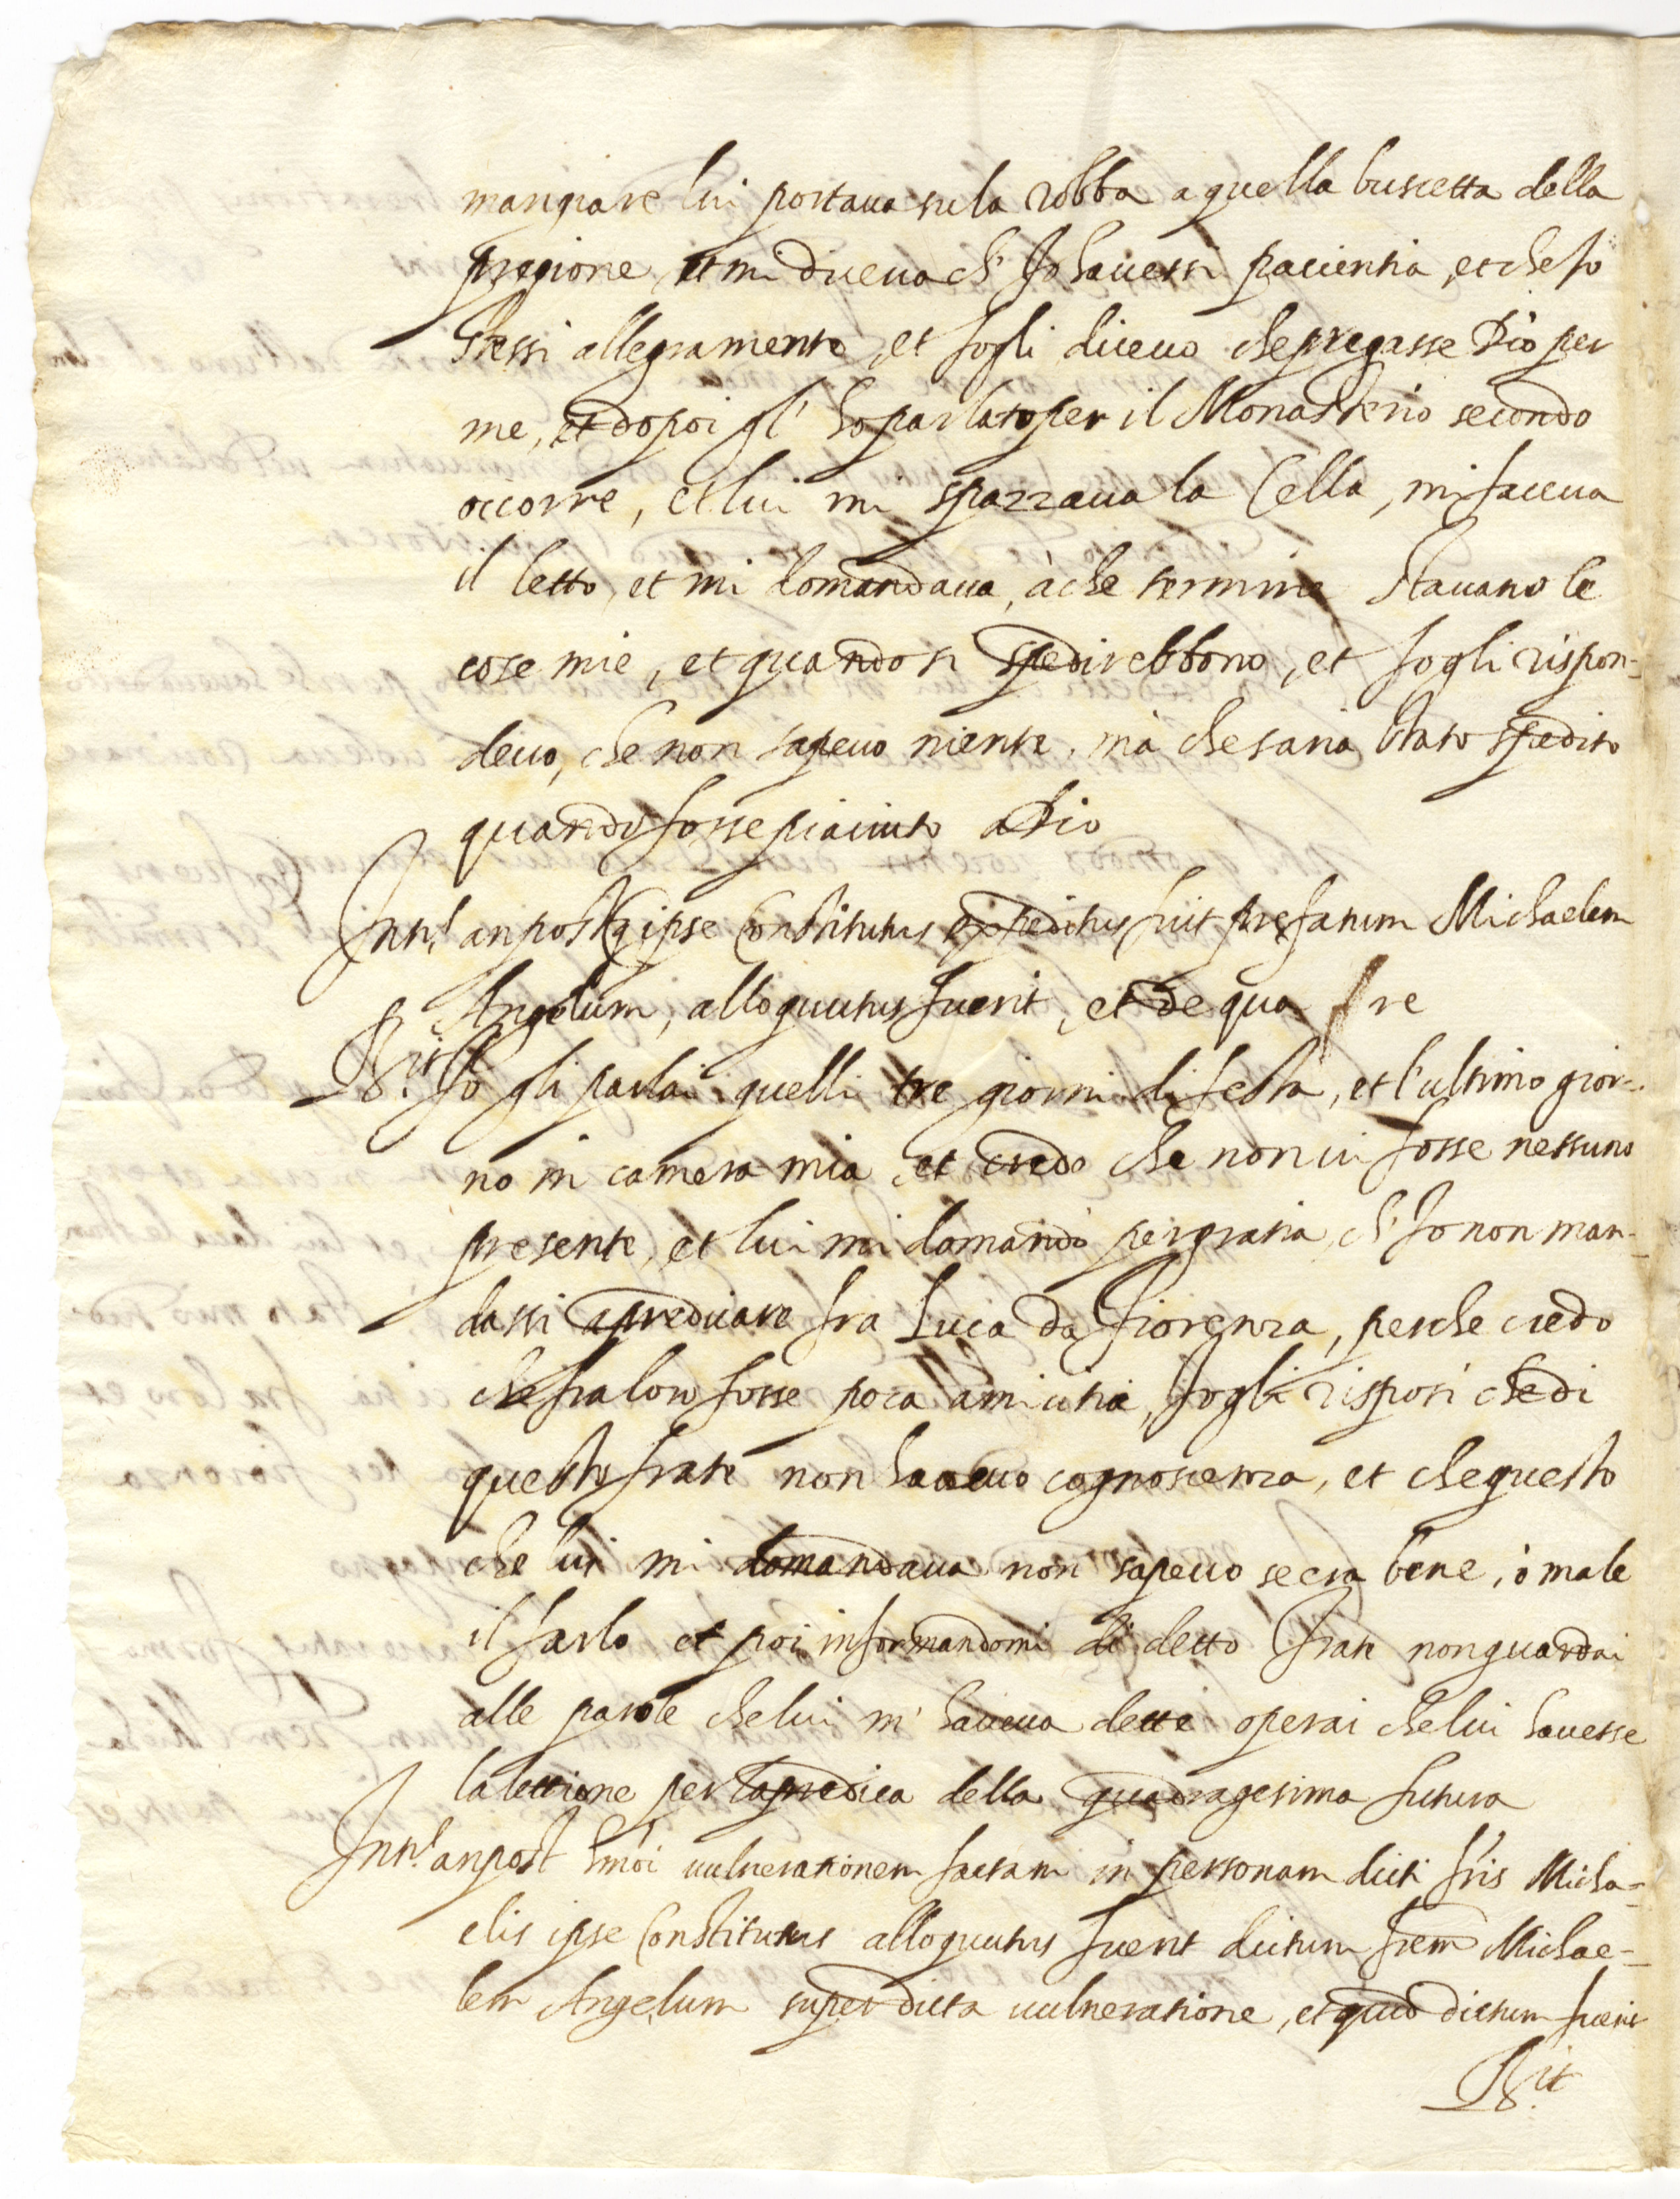 mangiare lui portaua su la robba a quella buscetta della
pregione, et mi diceua ch' Io hauessi pacientia, et che Io
stessi allegramente, et Io gli diceuo che pregasse Dio per
me, et dopoi gl' ho parlato per il Monasterio secondo
occorre, et lui mi spazzaua la Cella, mi faceua
il letto, et mi domandaua, à che termine stauano le
cose mie, et quando si spedirebbono, et Io gli rispon-
deuo, che non sapeuo niente, mà che saria stato spedito
quando fosse piaciuto a Dio
Intt. an postq ipse Constitutus expeditus fuit prefatum Michaelem
Angelum, alloquutus fuerit, et de qua re
Rt. Io gli parlai quelli tre giorni di festa, et l'ultimo gior-
no in camera mia, et credo che non ui fosse nessuno
presente, et lui mi domandò per gratia, ch' Io non man-
dassi a predicare fra Luca da Fiorenza, perche credo
che fra loro fosse poca amicitia, Io gli risposi che di
questo frate non haueuo cognoscenza, et che questo
che lui mi domandaua non sapeuo se era bene, ò male
il farlo et poi informandomi di detto frate non guardai
alle parole che lui m' haueua dette operai che lui hauesse
la lettione per la predica della quadragesima futura
Intt. an post hmoi uulnerationem factam in personam dicti fris Micha-
elis ipse Constitutus alloquutus fuerit dictum frem Michae-
lem Angelum super dicta uulneratione, et quid dictum fuerit
Rit